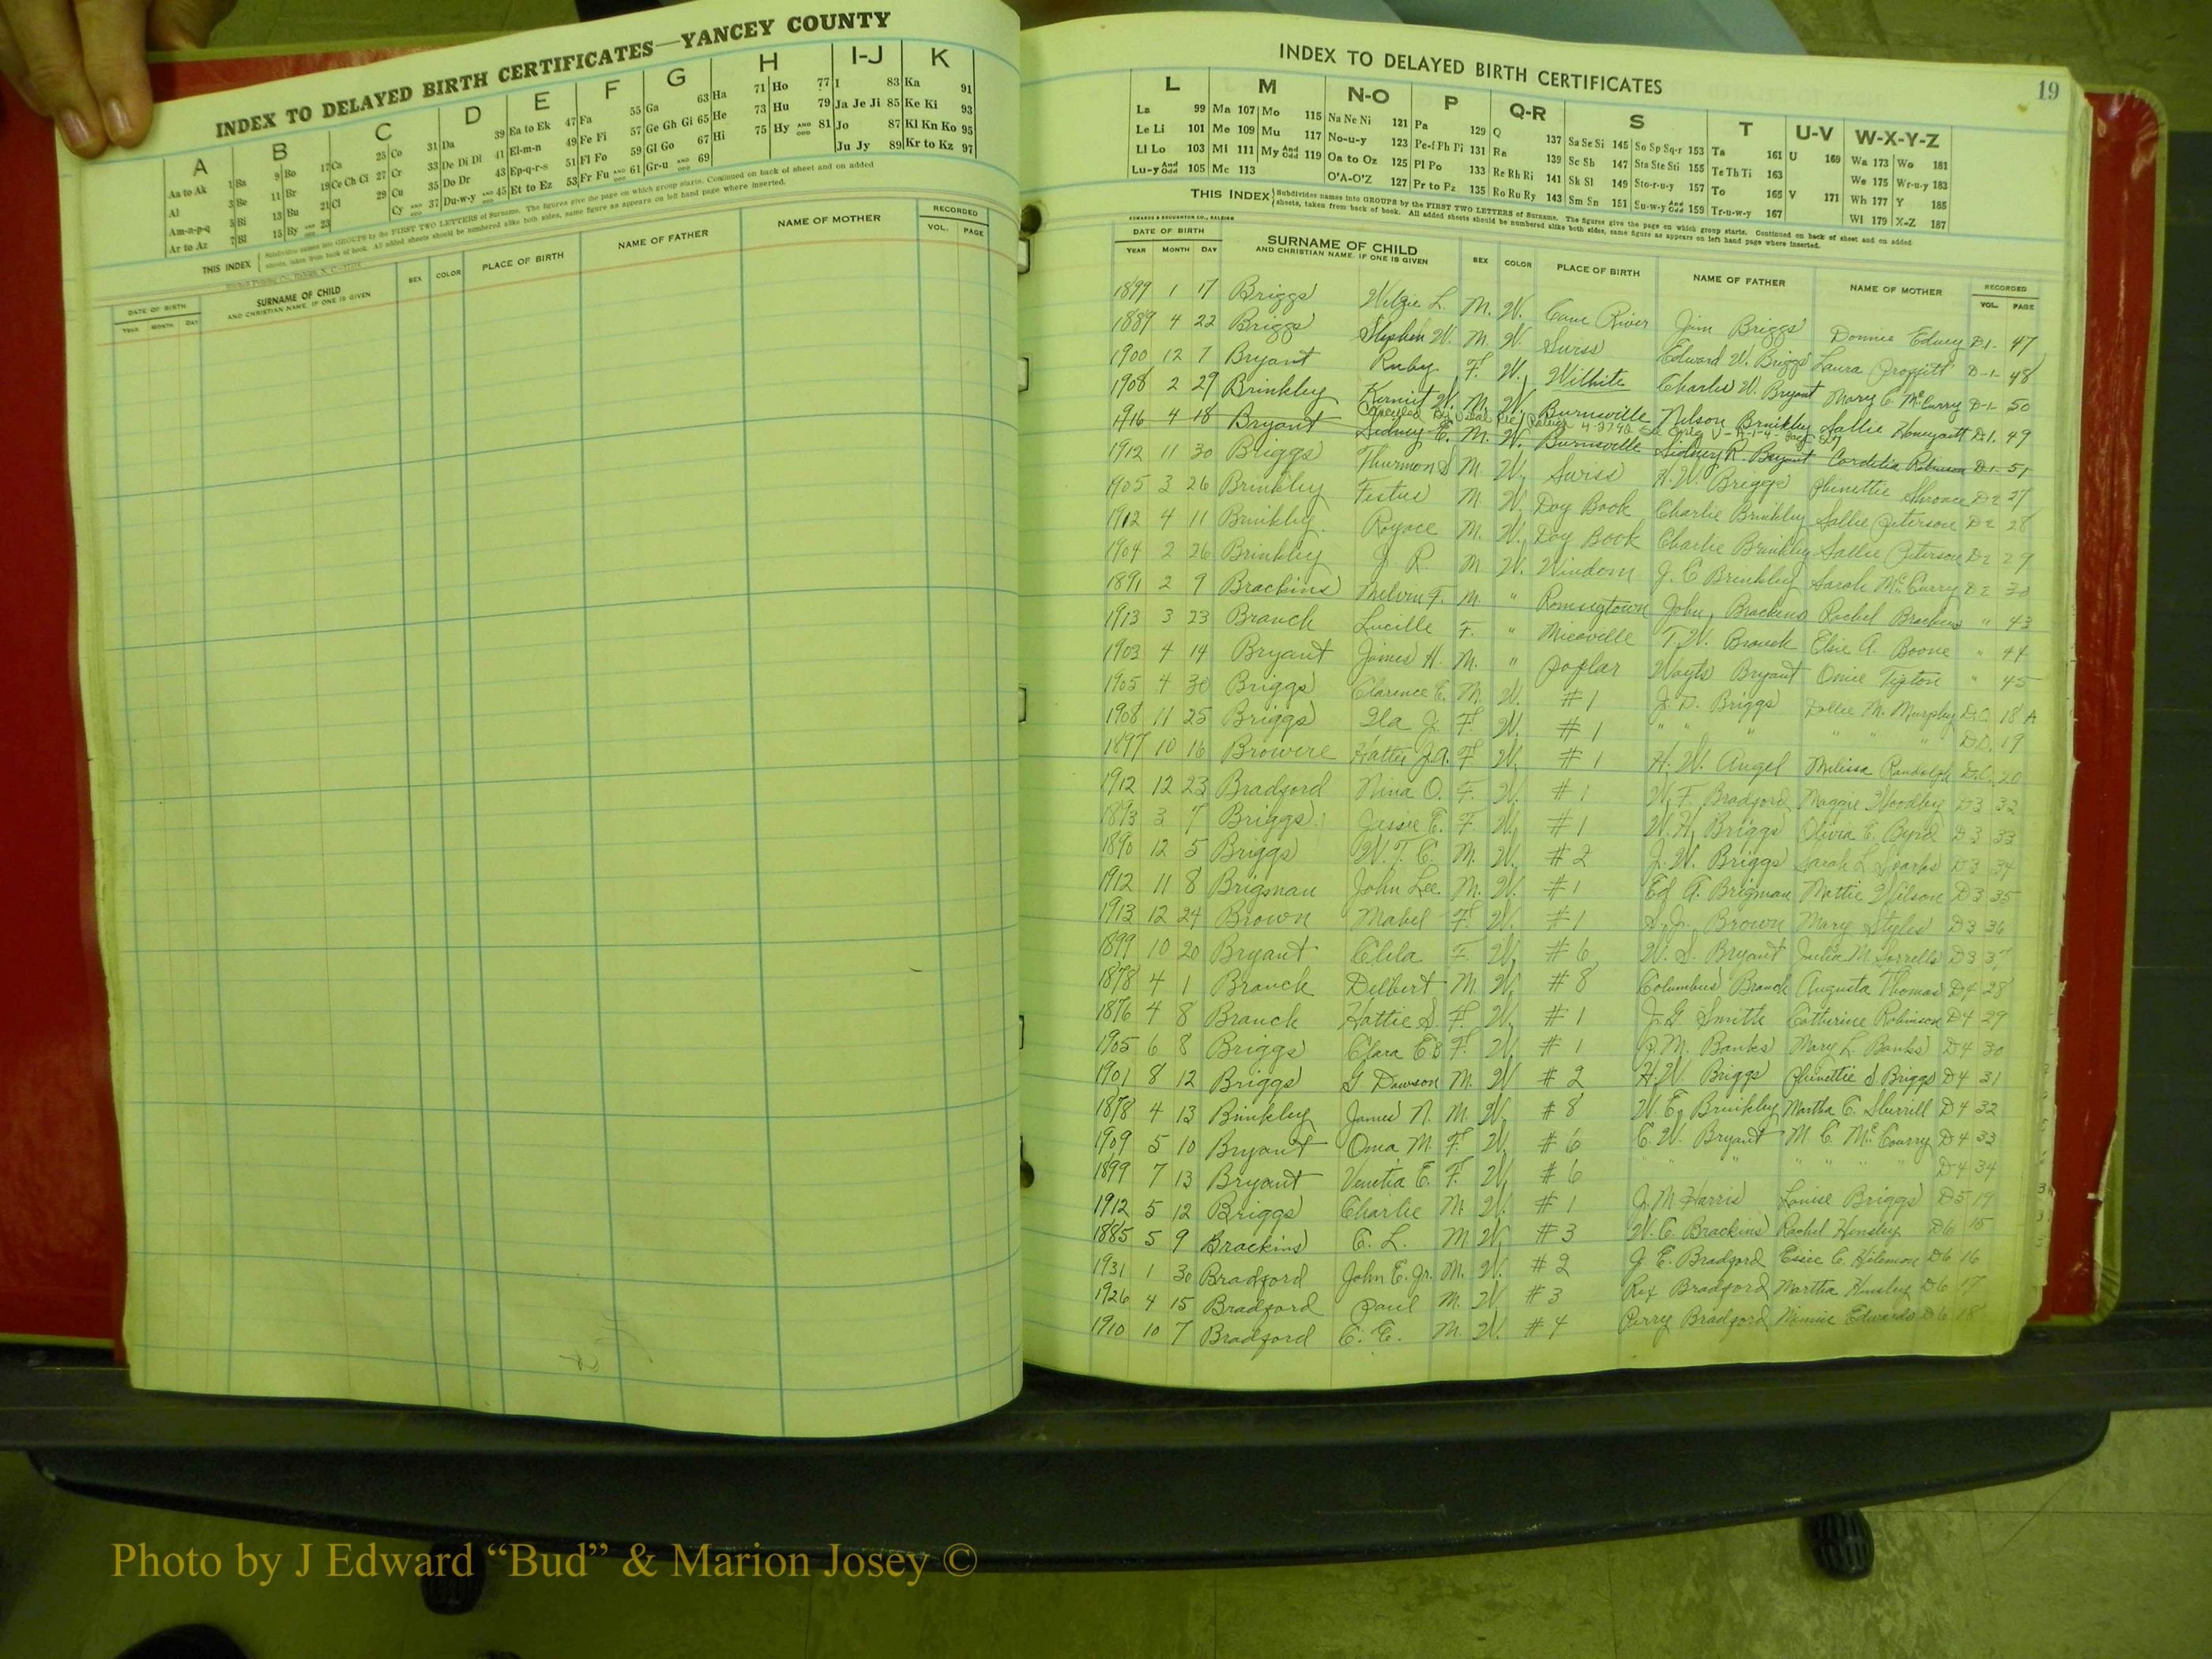 INDEX TO DELAYED BIRTH CERTIFICATES—YANCEY COUNTY
A B C D E F G H I-J K
Aa to Ak 1 Ba 9 Bo 17 Ca 25 Co 31 Da 39 Ea to Ek 47 Fa 55 Ga 63 Ha 71 Ho 77 I 83 Ka 91
Al 3 Be 11 Br 19 Ce Ch Ci 27 Cr 33 De Di Dl 41 El-m-n 49 Fe Fi 57 Ge Gh Gi 65 He 73 Hu 79 Ja Je Ji 85 Ke Ki 93
Am-n-p-q 5 Bi 13 Bu 21 Cl 29 Cu 35 Do Dr 43 Ep-q-r-s 51 Fl Fo 59 Gl Go 67 Hi 75 Hy AND ODD 81 Jo 87 Kl Kn Ko 95
Ar to Az 7 Bl 15 By AND ODD 23 Cy AND ODD 37 Du-w-y AND ODD 45 Et to Ez 53 Fr Fu AND ODD 61 Gr-u AND ODD 69 Ju Jy 89 Kr to Kz 97
THIS INDEX Subdivides names into GROUPS by the FIRST TWO LETTERS of Surname. The figures give the page on which group starts. Continued on back of sheet and on added
sheets, taken from back of book. All added sheets should be numbered alike both sides, same figure as appears on left hand page where inserted.
DATE OF BIRTH SURNAME OF CHILD SEX COLOR PLACE OF BIRTH NAME OF FATHER NAME OF MOTHER RECORDED
YEAR MONTH DAY AND CHRISTIAN NAME, IF ONE IS GIVEN VOL. PAGE
INDEX TO DELAYED BIRTH CERTIFICATES
19
L M N-O P Q-R S T U-V W-X-Y-Z
La 99 Ma 107 Mo 115 Na Ne Ni 121 Pa 129 Q 137 Sa Se Si 145 So Sp Sq-r 153 Ta 161 U 169 Wa 173 Wo 181
Le Li 101 Me 109 Mu 117 No-u-y 123 Pe-f Ph Pi 131 Ra 139 Sc Sh 147 Sta Ste Sti 155 Te Th Ti 163 We 175 Wr-u-y 183
Ll Lo 103 Mi 111 My And Odd 119 Oa to Oz 125 Pl Po 133 Re Rh Ri 141 Sk Sl 149 Sto-r-u-y 157 To 165 V 171 Wh 177 Y 185
Lu-y And Odd 105 Mc 113 O'A-O'Z 127 Pr to Pz 135 Ro Ru Ry 143 Sm Sn 151 Su-w-y And Odd 159 Tr-u-w-y 167 Wi 179 X-Z 187
THIS INDEX Subdivides names into GROUPS by the FIRST TWO LETTERS of Surname. The figures give the page on which group starts. Continued on back of sheet and on added
sheets, taken from back of book. All added sheets should be numbered alike both sides, same figure as appears on left hand page where inserted.
EDWARDS & BROUGHTON CO., RALEIGH
DATE OF BIRTH SURNAME OF CHILD SEX COLOR PLACE OF BIRTH NAME OF FATHER NAME OF MOTHER RECORDED
YEAR MONTH DAY AND CHRISTIAN NAME, IF ONE IS GIVEN VOL. PAGE
1899 1 17 Briggs L. M. W. Cane River Jim Briggs Donnie Edney D-1- 47
1889 4 22 Briggs Stephen W. M. W. Swiss Edward W. Briggs Laura Proffitt D-1- 48
1900 12 7 Bryant Ruby F. W. Wilhite Charles W. Bryant Mary C. McCurry D-1- 50
1908 2 29 Brinkley Kermit W. M. W. Burnsville Nelson Brinkley Sallie Honeycutt D-1. 49
1916 4 18 Bryant Sidney E. M. W. Burnsville Sidney R. Bryant Cordelia Robinson D-1- 51
1912 11 30 Briggs Thurmon S M. W. Swiss H. W. Briggs Phinettie Shroace D2 27
1905 3 26 Brinkley Festus M. W. Day Book Charlie Brinkley Sallie Peterson D2 28
1912 4 11 Brinkley Royace M. W. Day Book Charlie Brinkley Sallie Peterson D2 29
1904 2 26 Brinkley J. R. M W. Windom J. C. Brinkley Sarah McCurry D2 30
1891 2 9 Brackins Melvin F. M. " Ramseytown John Brackins Rachel Brackins " 43
1913 3 23 Branch Lucille F. " Micaville T. W. Branch Elsie A. Boone " 44
1903 4 14 Bryant James H. M. " Poplar Wayts Bryant Omie Tipton " 45
1905 4 30 Briggs Clarence E. M. W. #1 J. D. Briggs Dollie M. Murphy D.C. 18 A
1908 11 25 Briggs Ila J. F. W. #1 " " " " " " D.C. 19
1897 10 16 Browere Hattie J.A. F. W. #1 H. W. Angel Melissa Randolph D.C. 20
1912 12 23 Bradford Nina O. F. W. #1 W. F. Bradford Maggie Woodby D3 32
1893 3 7 Briggs Jessie E. F. W. #1 W. H. Briggs Olivia E. Byrd D3 33
1890 12 5 Briggs W. T. C. M. W. #2 J. W. Briggs Sarah L. Sparks D3 34
1912 11 8 Brigman John Lee M. W. #1 Ed A. Brigman Mattie Wilson D3 35
1913 12 24 Brown Mabel F. W. #1 S. J. Brown Mary Styles D3 36
1899 10 20 Bryant Clila F. W. #6 W. S. Bryant Julia M. Sorrells D3 37
1878 4 1 Branch Delbert M W. #8 Columbus Branch Augusta Thomas D4 28
1876 4 8 Branch Hattie S. F. W. #1 J. G. Smith Catherine Robinson D4 29
1905 6 8 Briggs Clara E B F. W. #1 P. M. Banks Mary L. Banks D4 30
1901 8 12 Briggs G. Dawson M. W #2 H. W. Briggs Phinettie S Briggs D4 31
1878 4 13 Brinkley James N. M. W. #8 W. E. Brinkley Martha C. Sherrill D4 32
1909 5 10 Bryant Oma M. F. W. #6 C. W. Bryant M. C. McCourry D4 33
1899 7 13 Bryant Venetia E. F. W. #6 " " " " " " D4 34
1912 5 12 Briggs Charlie M. W. #1 J. M. Harris Louise Briggs D5 19
1885 5 9 Brackins C. L. M W. #3 W. C. Brackins Rachel Hensley D6 15
1931 1 30 Bradford John E. Jr. M. W. #2 J. E. Bradford Essie C. Hilemon D6 16
1926 4 15 Bradford Paul M. W. #3 Rex Bradford Martha Hensley D6 17
1910 10 7 Bradford C. E. M. W. #4 Perry Bradford Minnie Edwards D6 18
Photo by J Edward “Bud” & Marion Josey ©